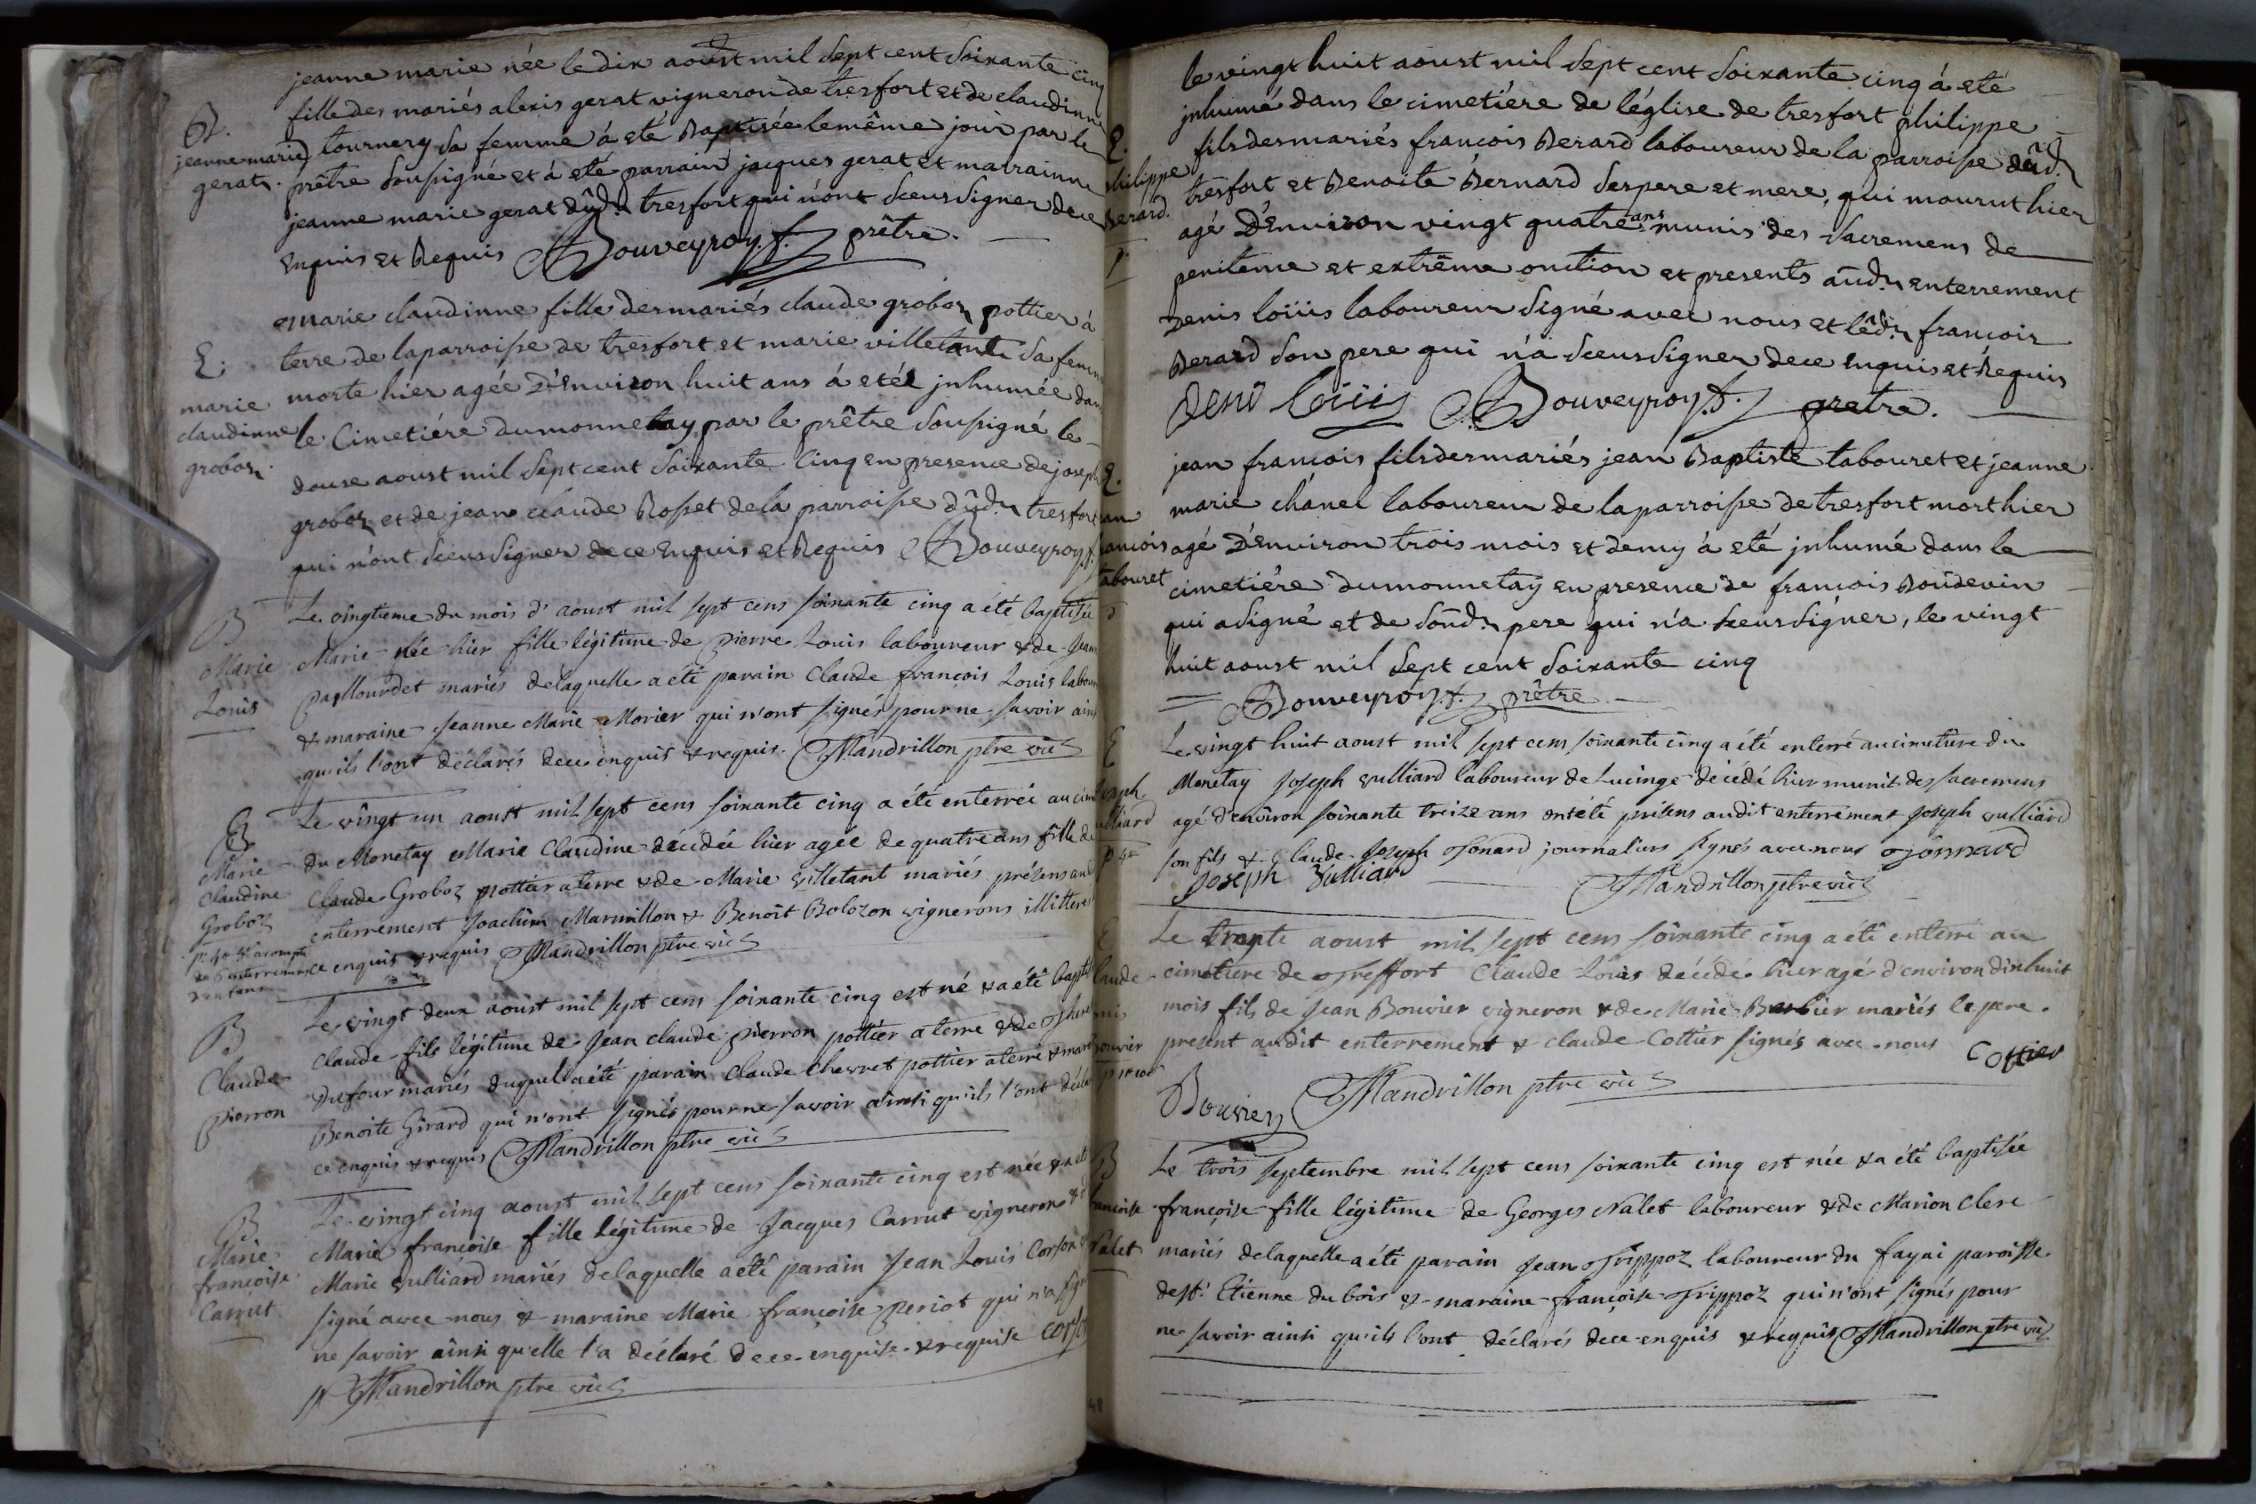 jeanne marie née le dix aoust mil sept cent soixante cinq
B. fille des mariés alexis gerat vigneron de tresfort et de claudinne
jeanne marie tournery sa femme à eté Baptisée le même jour par le
gerat. prêtre soussigné et à eté parrain jacques gerat et marrainne
jeanne marie gerat dud. tresfort qui n'ont sceus signer de ce
enquis et Requis Bouveyron f. prêtre.
marie claudinne fille des mariés claude groboz pottier à
E. terre de la parroisse de tresfort et marie villetant sa femme
marie morte hier agée d'Environ huit ans á eteé jnhumée dans
claudinne le Cimetiére du monnetay par le prêtre soussigné le
groboz. douse aoust mil sept cent soixante cinq en presence de joseph
groboz et de jean claude Rosset de la parroisse dud. tresfort
qui n'ont sceus signer de ce Enquis et Requis Bouveyron f.
B Le vingtieme du mois d'aoust mil sept cens soixante cinq a été baptisée
Marie Marie née hier fille légitime de pierre Louis laboureur & de Jeanne
Louis mariés de laquelle a été parain Claude françois Louis labour
& maraine Jeanne Marie Morier qui n'ont signés pour ne savoir ainsi
qu'ils l'ont déclarés de ce enquis & requis. Mandrillon ptre vic
E Le vingt un aoust mil sept cens soixante cinq a été enterrée au cim
Marie du Monetay Marie Claudine décédée hier agée de quatre ans fille de
Claudine Claude Groboz pottier a terre & de Marie villetant mariés présens aud
Groboz enterrement Joachim Marmillon & Benoit Bolozon vignerons illitterés
de ce enquis & requis Mandrillon ptre vic
B Le vingt deux aoust mil sept cens soixante cinq est né & a été bapt
Claude Claude fils légitime de Jean claude pierron pottier a terre & de
pierron Dufour mariés duquel a été parain Claude Chevret pottier a terre & mar
Benoite Girard qui n'ont signés pour ne savoir ainsi qu'ils l'ont décla
ce enquis & requis Mandrillon ptre vic
B Le vingt cinq aoust mil sept cens soixante cinq est née & a été
Marie Marie françoise fille légitime de Jacques Carrut vigneron & d
françoise Marie vulliard mariés de laquelle a été parain Jean Louis Corson
Carrut signé avec nous & maraine Marie françoise periot qui n'a signé
ne savoir ainsi qu'elle l'a déclaré de ce enquise & requise
Mandrillon ptre vic
le vingt huit aoust mil sept cent soixante cinq á eté
E. jnhumé dans le cimetiére de l'église de tresfort philippe
philippe fils des mariés françois Berard laboureur de la parroisse dud.
Berard. tresfort et Benoite Bernard ses pere et mere, qui mourut hier
agé d'Environ vingt quatre ans munis des sacremens de
penitence et extrême onction et presents aud. enterrement
Denis loüis laboureur signé avec nous et led. françois
Berard son pere qui n'a sceus signer de ce enquis et Requis
Deni loüis Bouveyron f. pretre.
E. jean françois fils des mariés jean Baptiste tabouret et jeanne
jean marie chanel laboureur de la parroisse de tresfort mort hier
françois agé d'Environ trois mois et demy á eté jnhumé dans le
tabouret cimetière du monnetay en presence de françois Boudevin
qui a signé et de sond. pere qui n'a sceus signer, le vingt
huit aoust mil sept cent soixante cinq
Bouveyron f. prêtre
E Le vingt huit aoust mil sept cens soixante cinq a été enterré au cimetiere du
Joseph Monetay Joseph vulliard laboureur de Lucinge décédé hier munit des sacremens
vulliard agé d'environ soixante treize ans ont été présens audit enterrement Joseph vulliard
son fils & Claude Joseph Jonard journaliers signés avec nous Jonnard
Joseph Vulliard Mandrillon ptre vic
E Le trente aoust mil sept cens soixante cinq a été enterré au
Claude cimetiere de Treffort Claude Louis décédé hier agé d'environ dix huit
Louis mois fils de Jean Bouvier vigneron & de Marie Barbier mariés le pere
Bouvier present audit enterrement & claude Cottier signés avec nous Cottier
Bouvier Mandrillon ptre vic
B Le trois septembre mil sept cens soixante cinq est née & a été baptisée
françoise françoise fille légitime de Georges Nalet laboureur & de Marion Clerc
Nalet mariés de laquelle a été parain Jean Trippoz laboureur du fayai paroisse
de st. Etienne du bois & maraine françoise Trippoz qui n'ont signés pour
ne savoir ainsi qu'ils l'ont déclarés de ce enquis & requis Mandrillon ptre vic